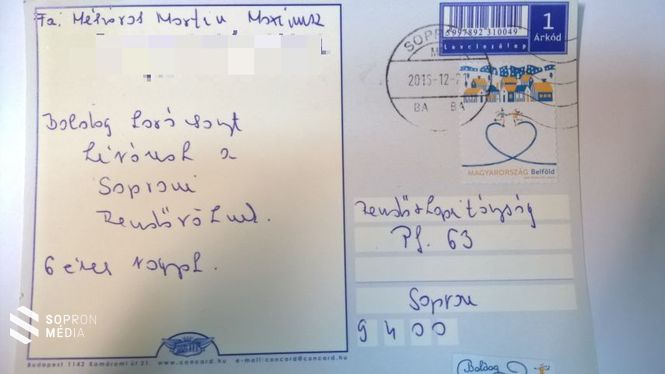 Fa: Mészáros Martin Mariusz
Boldog Karácsonyt
Kívánok a
Soproni
Rendőröknek.
6 éves vagyok.
Budapest 1142 Komáromi út 21. www.concord.hu e-mail:concord@concord.hu
5997892 310049
Levelezőlap
1
Árkód
SOPRON
2015-12-2
BA BA
MAGYARORSZÁG Belföld
Rendőrkapitányság
Pf. 63
Sopron
9400
Boldog
SOPRON
MÉDIA